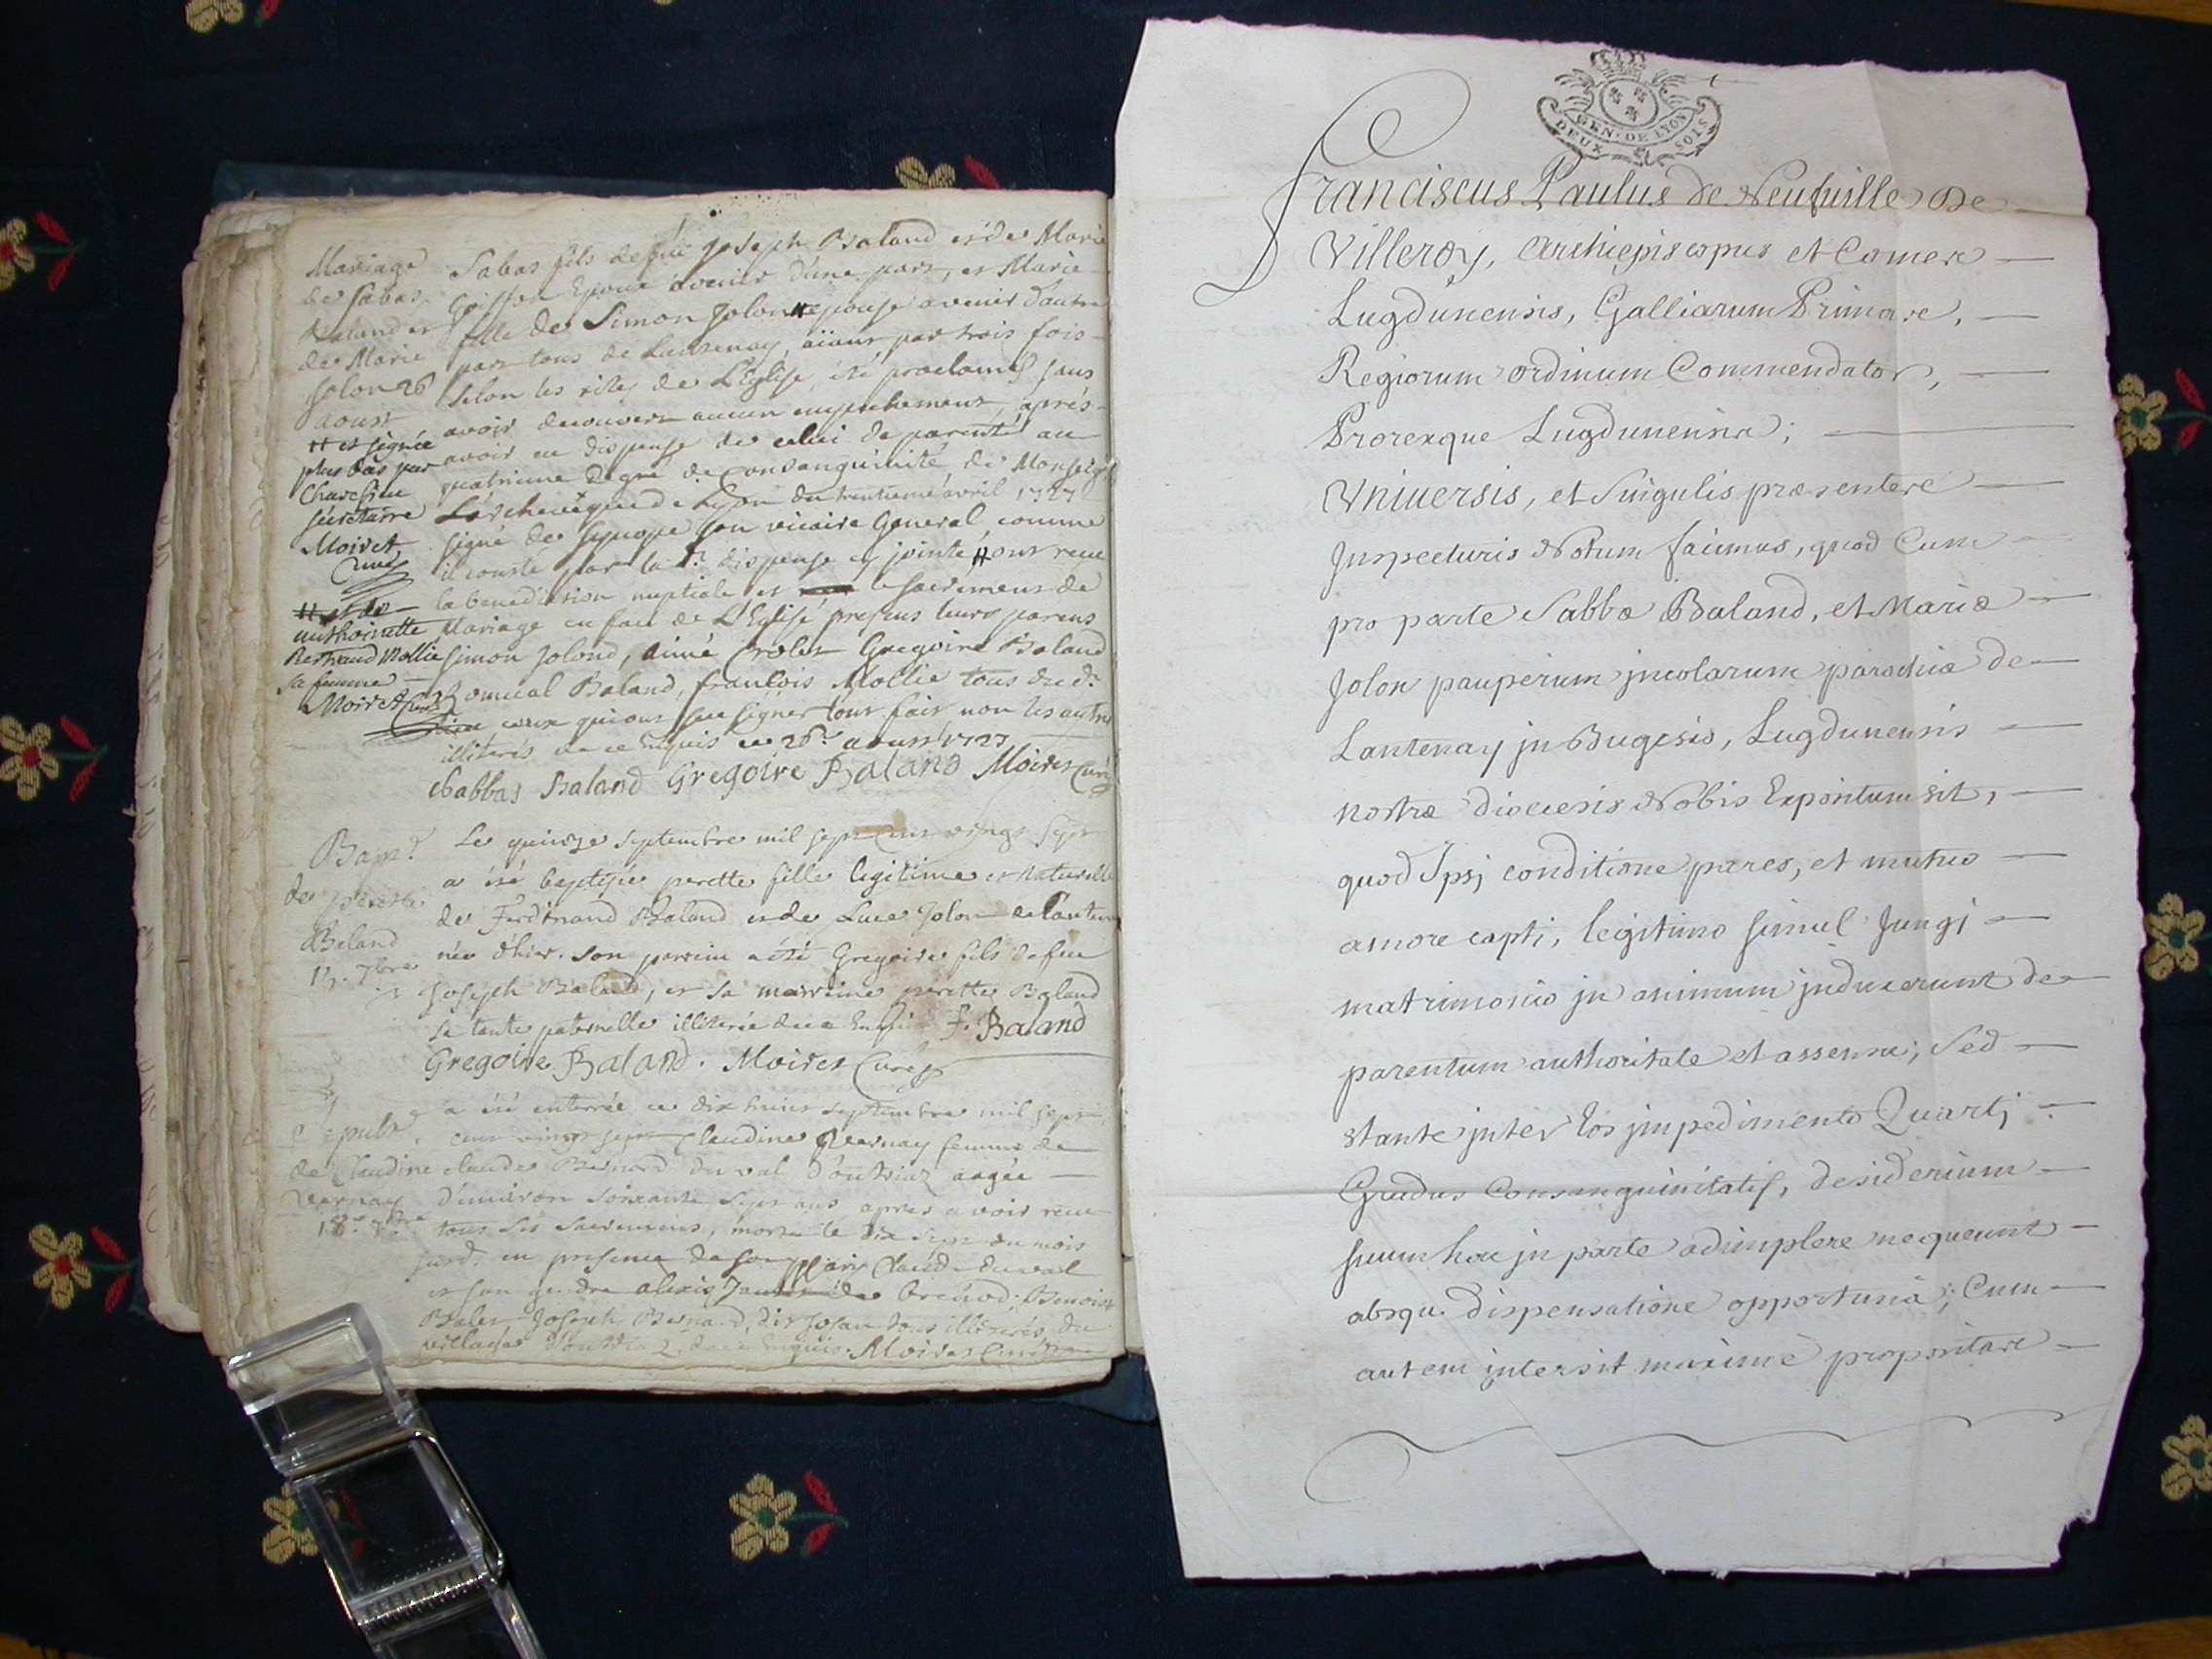 Mariage
de Sabas
Baland et
de Marie
Jolon 26
aoust
# et signée
plus bas par
secretaire
Moiret
Curé
# et de
anthoinette
Bertrand Mollie
sa femme
Moiret Curé
Sabas fils de feu Joseph Baland et de Marie
Goiffon Epoux avenir d'une part, et Marie
fille de Simon Jolon # epouse avenir d'autre
part tous de Lantenay, aïant par trois fois
selon les rites de L'Eglise, été proclamés sans
avoir decouvert aucun empechement, aprés
avoir eu dispense de celui de parenté au
quatrieme degré de Consanguinité de Monseigr
L'archevêque de Lyon du trentieme avril 1727
signé de Synope son vicaire General, comme
il conste par la d.e dispense cy jointe # ont recu
la benediction nuptiale et le sacrement de
Mariage en face de L'Eglise presens leurs parens
Simon Jolond, Aimé Grolet Gregoire Baland
Romual Baland, francois Mollie tous dud.
ceux qui ont sceu signer l'ont fait non les autres
illiterés de ce Enquis ce 26e aoust 1727
Sabbas Baland Gregoire Baland Moiret Curé
Bapt.
de perette
Baland
15. 7bre
Le quinze septembre mil sept cent vingt sept
a été baptisée perette fille legitime et naturelle
de Ferdinand Baland et de Luce Jolon de Lanten
née d'hier. son parrin a été Gregoire fils de feu
Joseph Baland, et sa marrine perette Baland
sa tante paternelle illiterée de ce Enquise F. Baland
Gregoire Baland. Moiret Curé
Sepult.
de Claudine
Vernay
18e 7bre
a été enterrée ce dix huit septembre mil sept
cent vingt sept Claudine Vernay femme de
claude Bernard du val d'outriaz aagée
d'environ soixante sept ans, apres avoir recu
tous ses sacremens, morte le dix sept du mois
susd. en presence de son Mary Claude duval
et son gendre alexis de brenod, Benoist
Balet Joseph Bernard, dit Josan tous illiterés du
village d'outriaz de ce Enquis. Moiret Curé
GEN. DE LYON
DEUX SOLS
Franciscus Paulus de Neufuille De
Villeroy, Archiepiscopus et Comes
Lugdunensis, Galliarum Primas,
Regiorum ordinum Commendator,
Prorexque Lugdunensis;
Vniuersis, et Singulis præsentes
Inspecturis Notum facimus, quod Cum
pro parte Sabbæ Baland, et Mariæ
Jolon pauperum jncolarum parochiæ de
Lantenay jn Bugesio, Lugdunensis
nostræ diocesis Nobis Expositum sit,
quod Ipsj conditione pares, et mutuo
amore capti, legitimo simul Jungj
matrimonio jn animum jnduxerunt de
parentum authoritate et assensu; Sed
stante jnter Eos jmpedimento Quartj
Gradus Consanguinitatis, desiderium
suum hac jn parte adimplere nequeunt
absqu. dispensatione opportuna; Cum
autem jntersit maximè propositas